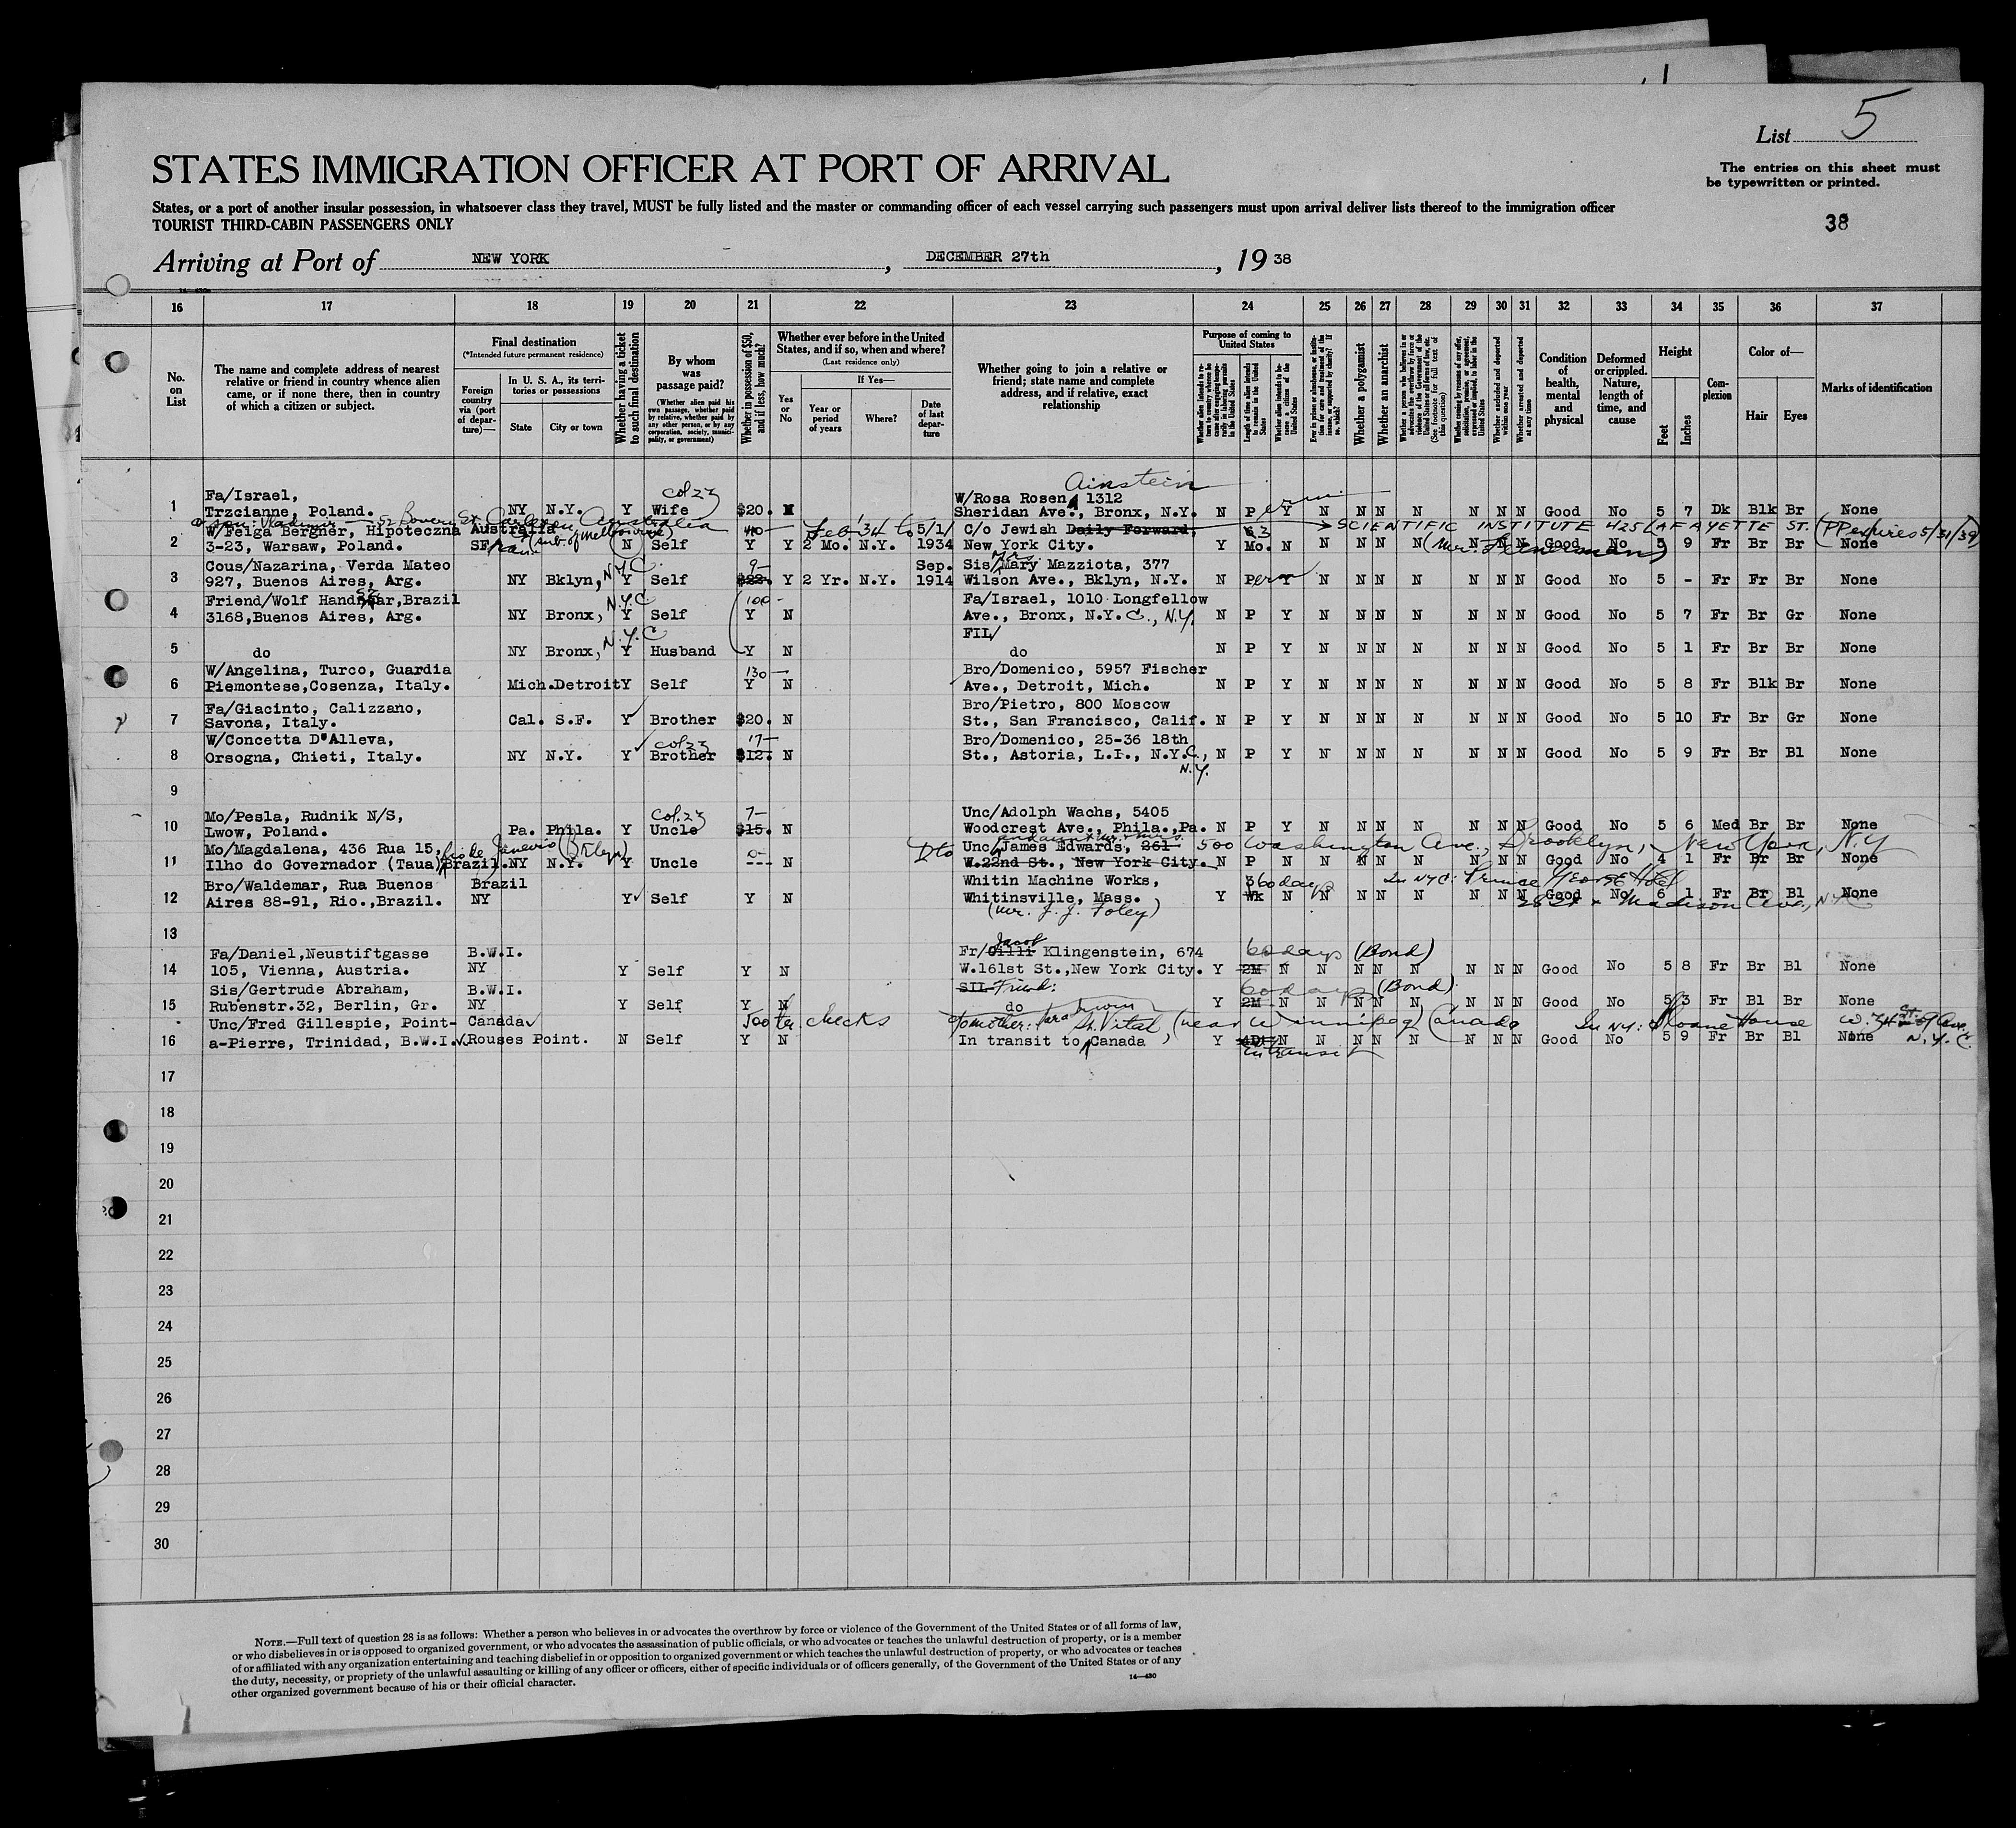 List 5
STATES IMMIGRATION OFFICER AT PORT OF ARRIVAL
The entries on this sheet must
be typewritten or printed.
States, or a port of another insular possession, in whatsoever class they travel, MUST be fully listed and the master or commanding officer of each vessel carrying such passengers must upon arrival deliver lists thereof to the immigration officer
TOURIST THIRD-CABIN PASSENGERS ONLY
38
Arriving at Port of NEW YORK, DECEMBER 27th, 1938
16 17 18 19 20 21 22 23 24 25 26 27 28 29 30 31 32 33 34 35 36 37
No. on List
The name and complete address of nearest relative or friend in country whence alien came, or if none there, then in country of which a citizen or subject.
Final destination
(*Intended future permanent residence)
Foreign country via (port of departure)—
In U. S. A., its territories or possessions
State
City or town
Whether having a ticket to such final destination
By whom was passage paid?
(Whether alien paid his own passage, whether paid by relative, whether paid by any other person, or by any corporation, society, municipality, or government)
Whether in possession of $50, and if less, how much?
Whether ever before in the United States, and if so, when and where?
(Last residence only)
Yes or No
If Yes—
Year or period of years
Where?
Date of last departure
Whether going to join a relative or friend; state name and complete address, and if relative, exact relationship
Purpose of coming to United States
Length of time alien intends to remain in the United States
Whether alien intends to become a citizen of the United States
Whether a polygamist
Whether an anarchist
Whether excluded and deported within one year
Whether arrested and deported at any time
Condition of health, mental and physical
Deformed or crippled. Nature, length of time, and cause
Height
Feet
Inches
Complexion
Color of—
Hair
Eyes
Marks of identification
Ainstein
Fa/Israel, col 23 W/Rosa Rosen, 1312
1 Trzcianne, Poland. NY N.Y. Y Wife $20. N Sheridan Ave., Bronx, N.Y. N P Y N N N N N N N Good No 5 7 Dk Blk Br None
W/Feiga Bergner, Hipoteczna Australia 40 Feb '34 to 5/1/ C/o Jewish Daily Forward, SCIENTIFIC INSTITUTE 425 LAFAYETTE ST. (PP expires 5/31/39)
2 3-23, Warsaw, Poland. SF N Self Y Y 2 Mo. N.Y. 1934 New York City. Y Mo. N N N N N N N N Good No 5 9 Fr Br Br None
Cous/Nazarina, Verda Mateo N.Y.C. 9- Sep. Sis/Mary Mazziota, 377
3 927, Buenos Aires, Arg. NY Bklyn, Y Self $22. Y 2 Yr. N.Y. 1914 Wilson Ave., Bklyn, N.Y. N Perm Y N N N N N N N Good No 5 - Fr Fr Br None
Friend/Wolf Handszar, Brazil N.Y.C 100- Fa/Israel, 1010 Longfellow
4 3168, Buenos Aires, Arg. NY Bronx, Y Self Y N Ave., Bronx, N.Y.C., N.Y. N P Y N N N N N N N Good No 5 7 Fr Br Gr None
N.Y.C FIL/
5 do NY Bronx, Y Husband Y N do N P Y N N N N N N N Good No 5 1 Fr Br Br None
W/Angelina, Turco, Guardia 130- Bro/Domenico, 5957 Fischer
6 Piemontese,Cosenza, Italy. Mich.Detroit Y Self Y N Ave., Detroit, Mich. N P Y N N N N N N N Good No 5 8 Fr Blk Br None
Fa/Giacinto, Calizzano, Bro/Pietro, 800 Moscow
7 Savona, Italy. Cal. S.F. Y Brother $20. N St., San Francisco, Calif. N P Y N N N N N N N Good No 5 10 Fr Br Gr None
W/Concetta D'Alleva, col 23 17- Bro/Domenico, 25-36 18th
8 Orsogna, Chieti, Italy. NY N.Y. Y Brother $12. N St., Astoria, L.I., N.Y.C., N.Y. N P Y N N N N N N N Good No 5 9 Fr Br Bl None
9
Mo/Pesla, Rudnik N/S, Col. 23 7- Unc/Adolph Wachs, 5405
10 Lwow, Poland. Pa. Phila. Y Uncle $15. N Woodcrest Ave., Phila.,Pa. N P Y N N N N N N N Good No 5 6 Med Br Br None
Mo/Magdalena, 436 Rua 15, Rio de Janeiro (Bklyn) 0- Unc/James Edwards, 261 and aunt Mr. & Mrs. 500 Washington Ave., Brooklyn, New York, N.Y
11 Ilho do Governador (Taua) Brazil. NY N.Y. Y Uncle --- N W.22nd St., New York City. N P N N N N N N N N Good No 4 1 Fr Br Br None
Bro/Waldemar, Rua Buenos Brazil Whitin Machine Works, 360 days In NYC: Prince George Hotel
12 Aires 88-91, Rio.,Brazil. NY Y Self Y N Whitinsville, Mass. Y Wk N N N N N N N N Good No 6 1 Fr Br Bl None
(Mr. J. J. Foley) Madison Ave., N.Y.C.
13
Fa/Daniel,Neustiftgasse B.W.I. Fr/Cilli Jacob Klingenstein, 674 60 days (Bond)
14 105, Vienna, Austria. NY Y Self Y N W.161st St.,New York City. Y 2M N N N N N N N N Good No 5 8 Fr Br Bl None
Sis/Gertrude Abraham, B.W.I. SIL Friend: 60 days (Bond)
15 Rubenstr.32, Berlin, Gr. NY Y Self Y N do Y 2M N N N N N N N N Good No 5 3 Fr Bl Br None
Unc/Fred Gillespie, Point- Canada 500 tr. checks to mother: St. Vital (near Winnipeg) Canada In NY: Sloane House W. 34 St - 9 Ave. N.Y.C.
16 a-Pierre, Trinidad, B.W.I. Rouses Point. N Self Y N In transit to Canada Y 4D N N N N N N N N Good No 5 9 Fr Br Bl None
In transit
17
18
19
20
21
22
23
24
25
26
27
28
29
30
NOTE.—Full text of question 28 is as follows: Whether a person who believes in or advocates the overthrow by force or violence of the Government of the United States or of all forms of law,
or who disbelieves in or is opposed to organized government, or who advocates the assassination of public officials, or who advocates or teaches the unlawful destruction of property, or is a member
of or affiliated with any organization entertaining and teaching disbelief in or opposition to organized government or which teaches the unlawful destruction of property, or who advocates or teaches
the duty, necessity, or propriety of the unlawful assaulting or killing of any officer or officers, either of specific individuals or of officers generally, of the Government of the United States or of any
other organized government because of his or their official character.
14—430